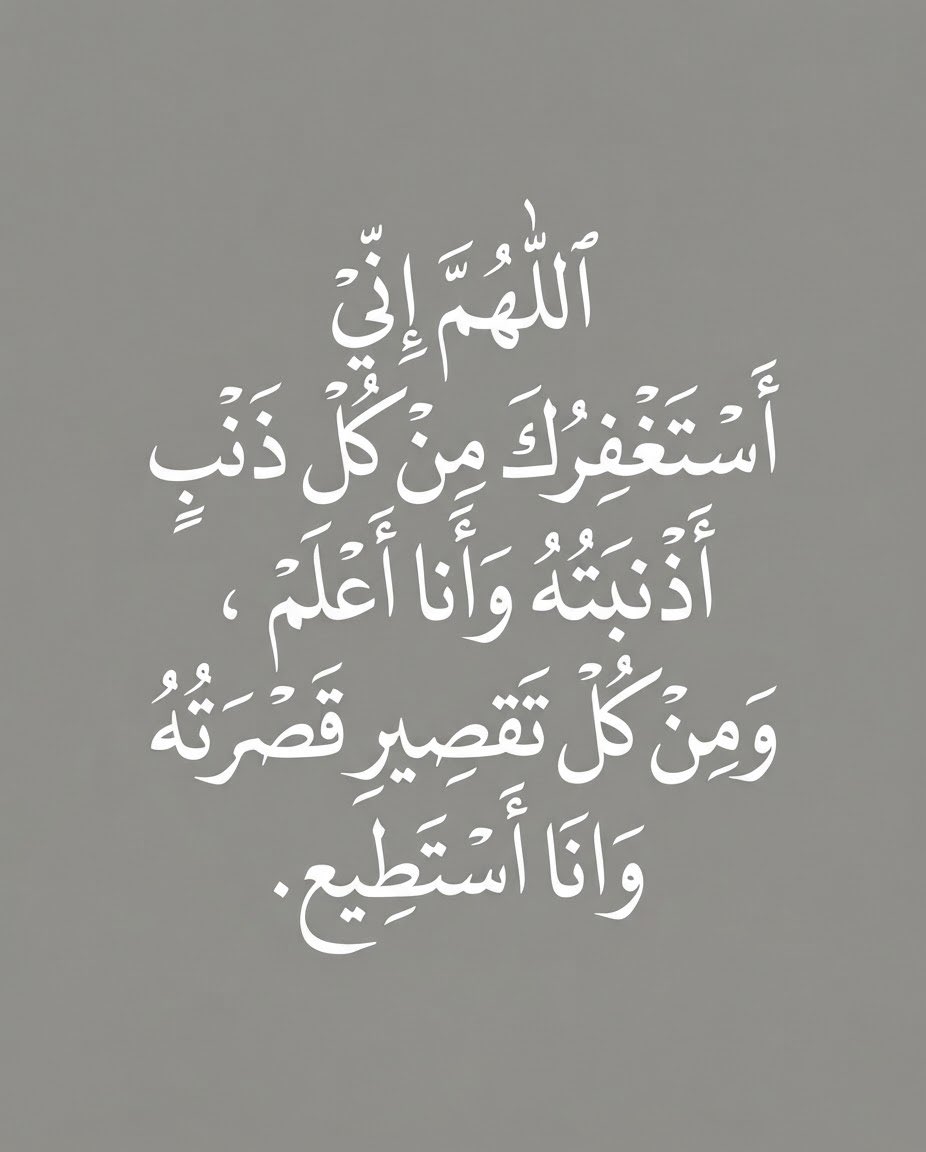 ٱللّٰهُمَّ إِنّيْ
أَسْتَغْفِرُكَ مِنْ كُلْ ذَنْبٍ
أَذْنبَتُهُ وَأَنا أَعْلَمْ ،
وَمِنْ كُلْ تَقصِيرِ قَصْرَتُهُ
وَانَا أَسْتَطِيع.